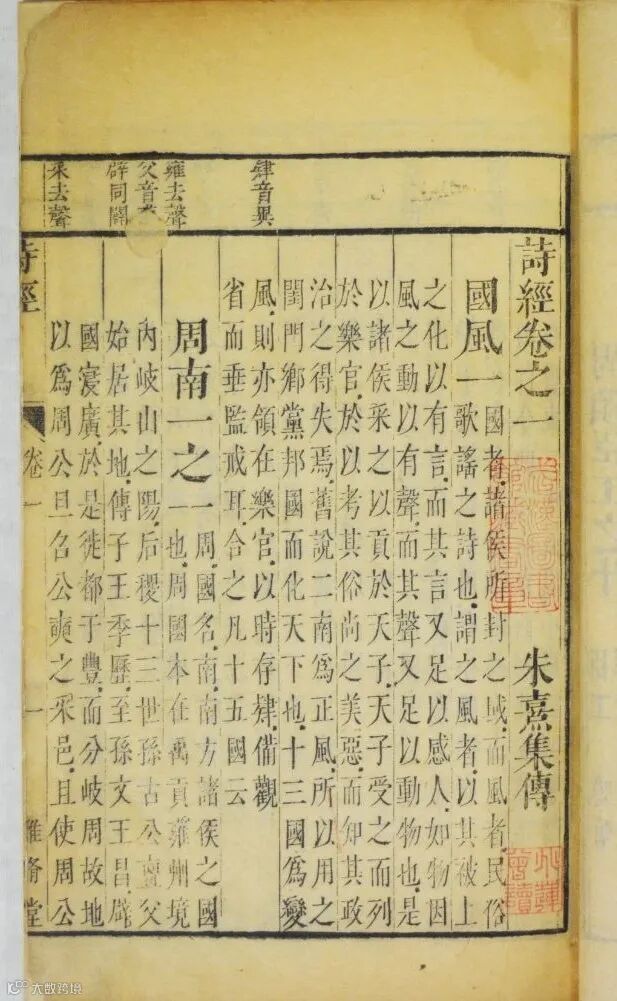 詩經卷之一 朱熹集傳
國風一 國者諸侯所封之域而風者民俗
歌謠之詩也謂之風者以其被上
之化以有言而其言又足以感人如物因
風之動以有聲而其聲又足以動物也是
以諸侯采之以貢於天子天子受之而列
於樂官於以考其俗尚之美惡而知其政
治之得失焉舊說二南爲正風所以用之
閨門鄉黨邦國而化天下也十三國爲變
風則亦領在樂官以時存肄備觀
省而垂監戒耳合之凡十五國云
周南一之一 周國名南南方諸侯之國
也周國本在禹貢雍州境
內岐山之陽后稷十三世孫古公亶父
始居其地傳子王季歷至孫文王昌辟
國寖廣於是徙都于豐而分岐周故地
以爲周公旦召公奭之采邑且使周公
肄音異
雍去聲
父音
辟同闢
采去聲
詩經 卷一 一 堂
大数跨境